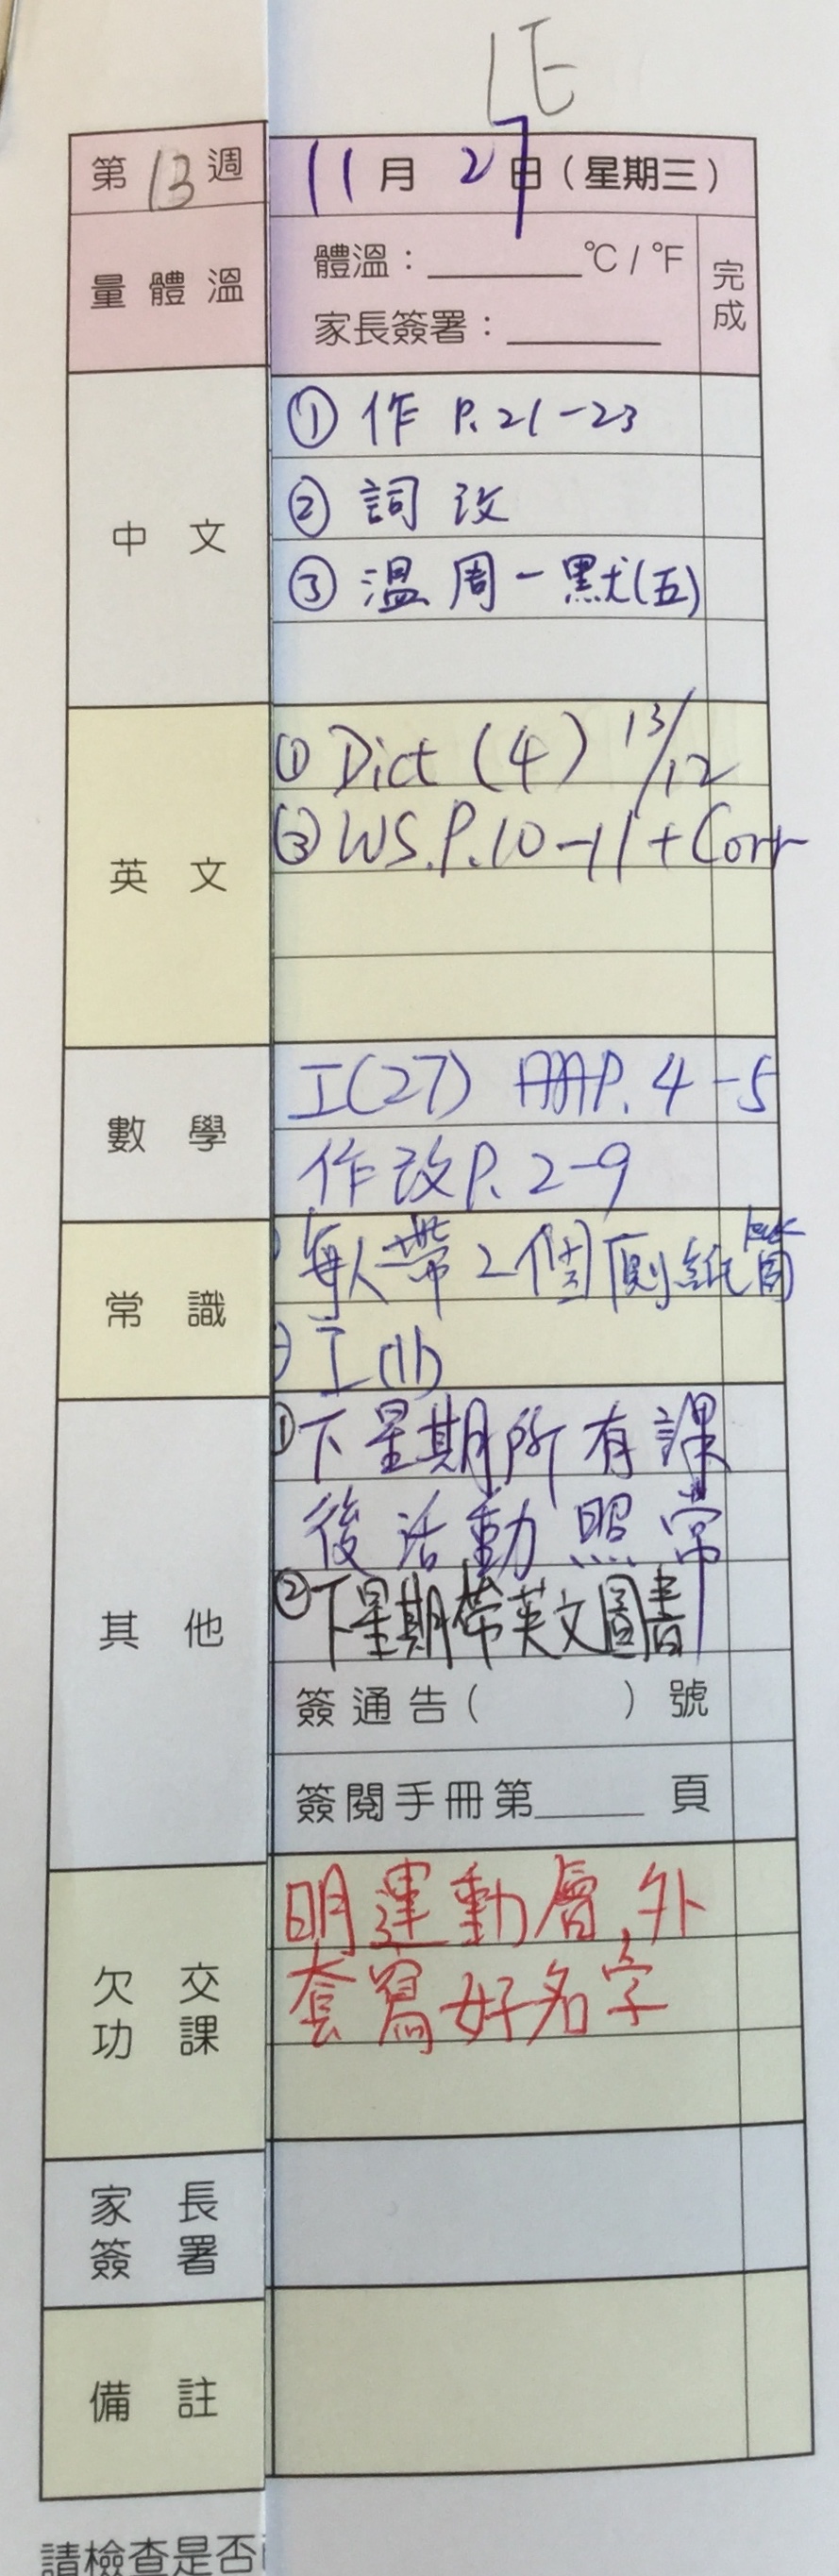 1E
第13週 11月27日（星期三）
量體溫
體溫：______°C / °F
家長簽署：______
完成
中文
① 作 P.21-23
② 詞改
③ 溫周一默(五)
英文
① Dict (4) 13/12
③ WS.P.10-11+Corr
數學
工(27) AAP.4-5
作改P.2-9
常識
每人帶2個廁紙筒
工(11)
其他
①下星期所有課
後活動照常
②下星期帶英文圖書
簽通告（　　）號
簽閱手冊第____頁
欠交功課
明運動層,外
套寫好名字
家長簽署
備註
請檢查是否